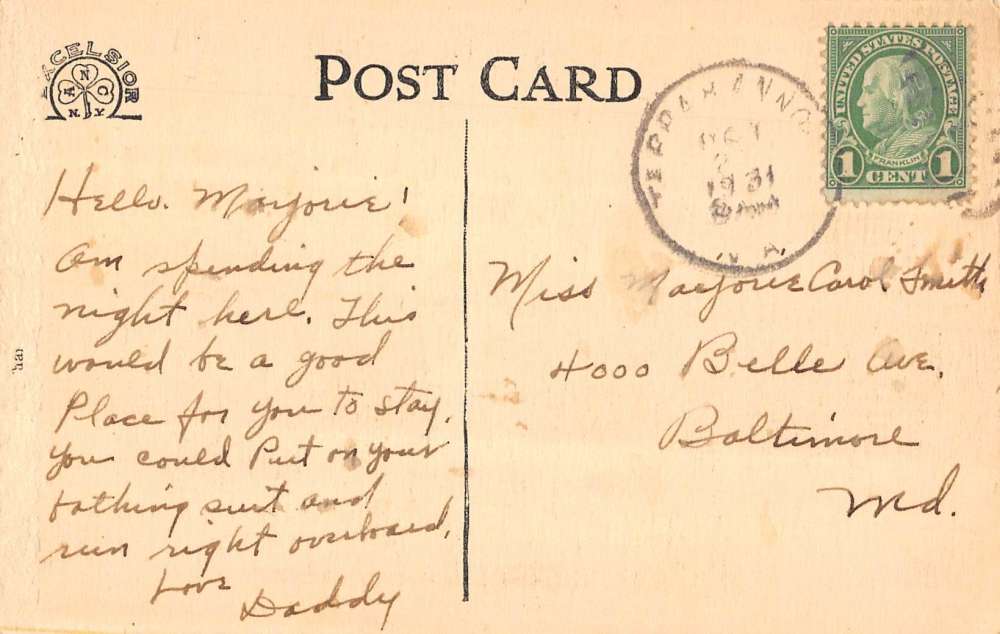 EXCELSIOR
A N C
N.Y.
POST CARD
UNITED STATES POSTAGE
FRANKLIN
1 CENT 1
1931
VA
Hello. Marjorie!
Am spending the
night here. This
would be a good
Place for you to stay.
you could Put on your
bathing suit and
run right overboard.
Love
Daddy
Miss Marjorie Carol Smith
4000 Belle Ave.
Baltimore
Md.